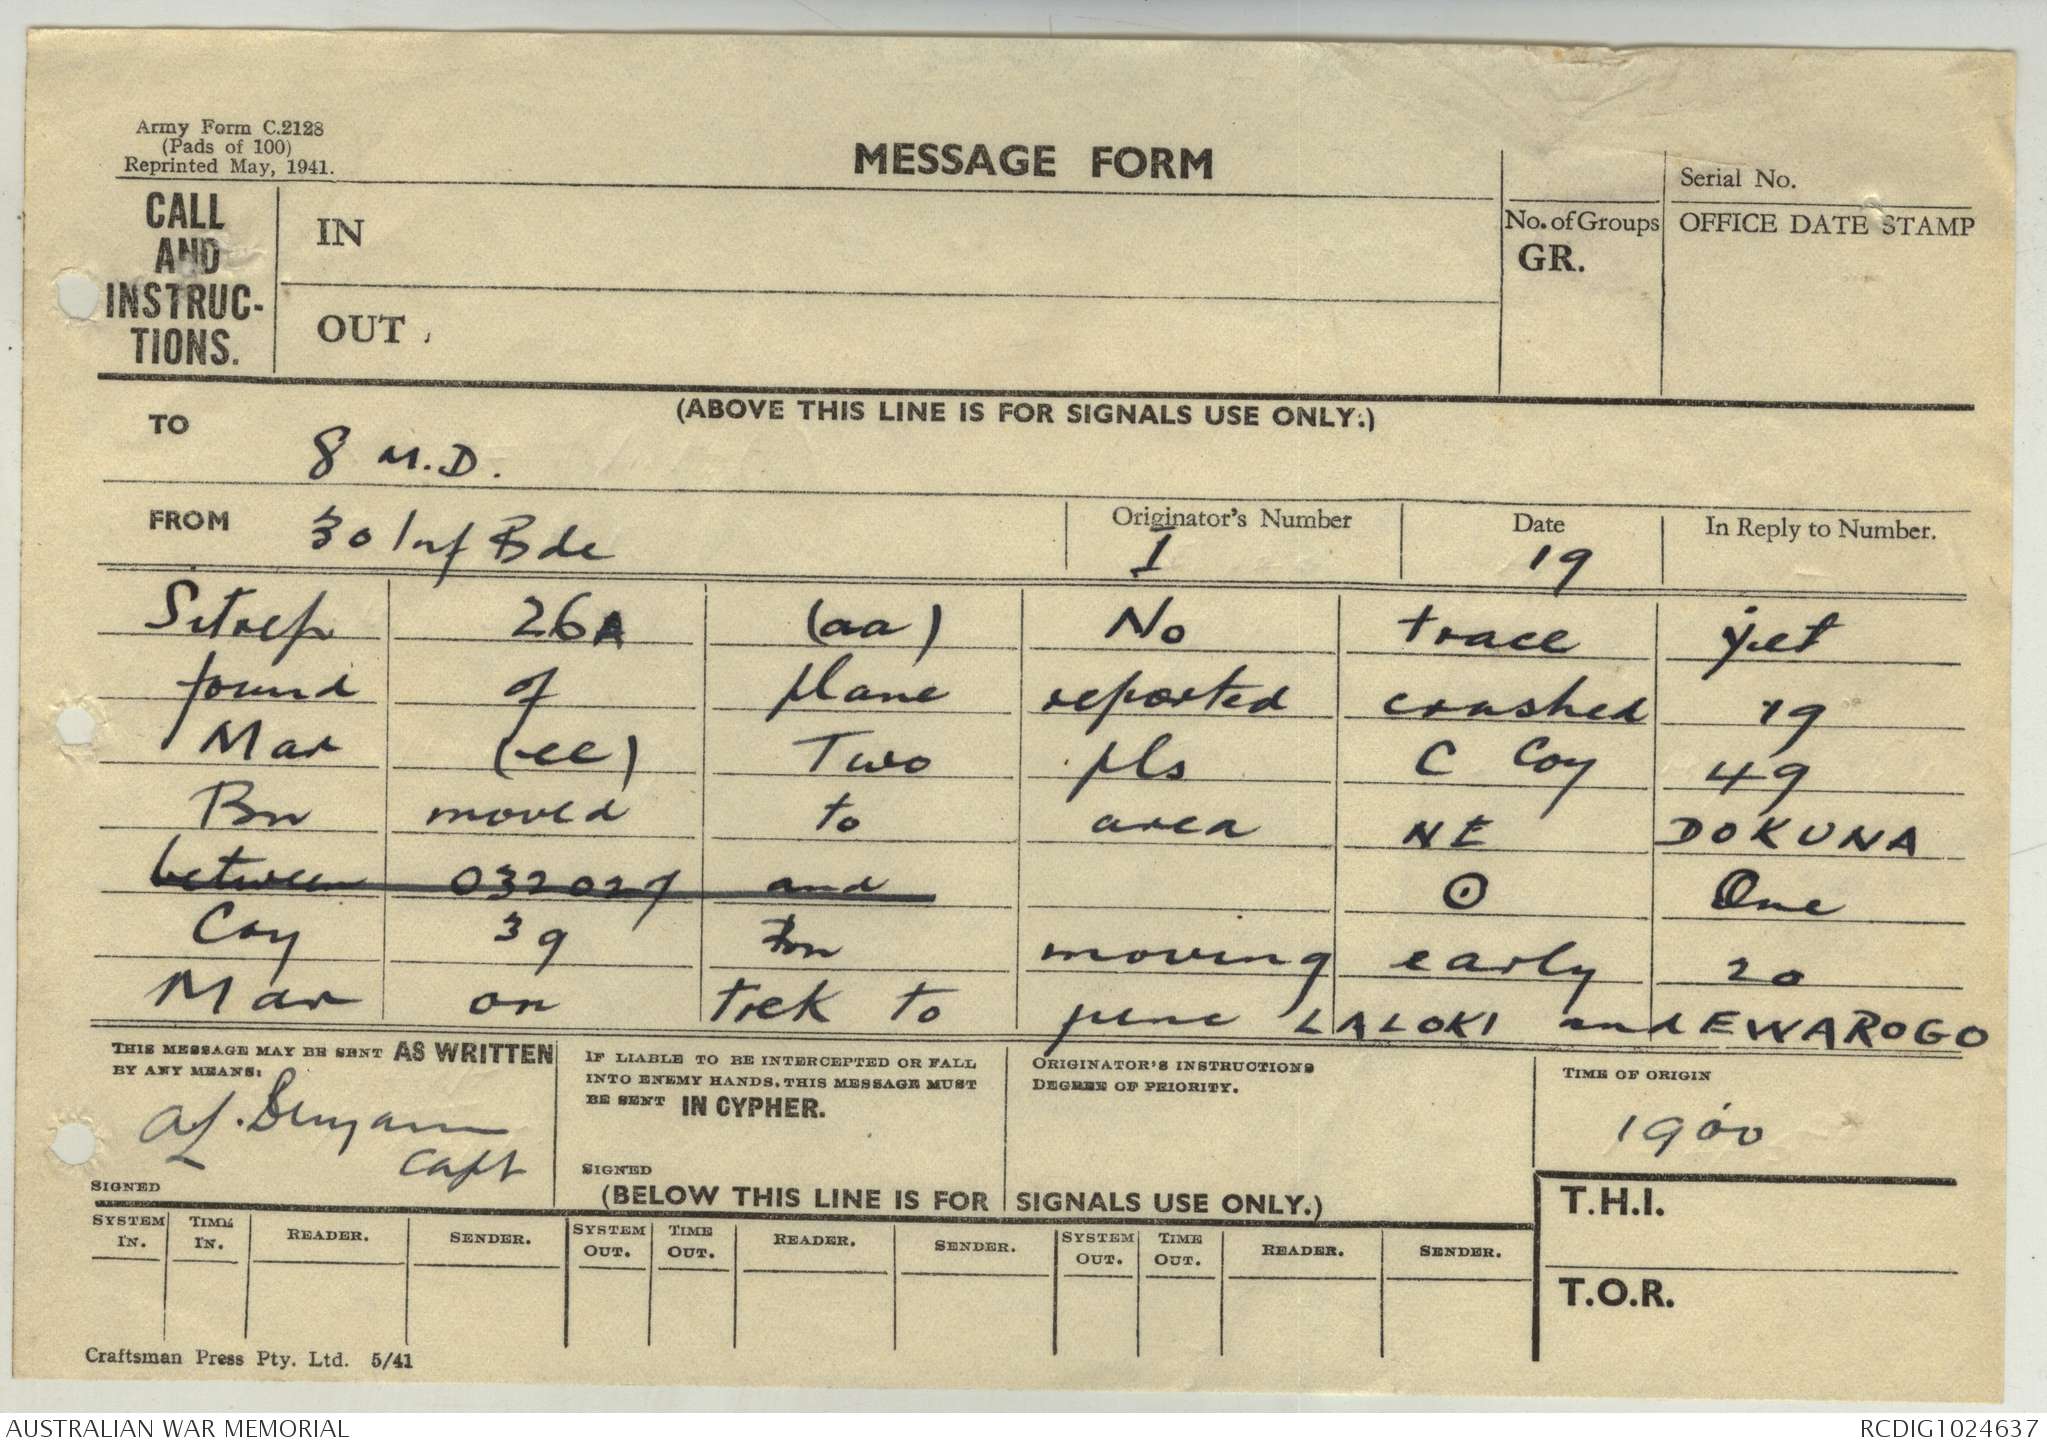 Army Form C.2128
(Pads of 100)
Reprinted May, 1941.
MESSAGE FORM
CALL AND INSTRUC-TIONS.
IN
OUT
No. of Groups
GR.
Serial No.
OFFICE DATE STAMP
(ABOVE THIS LINE IS FOR SIGNALS USE ONLY.)
TO 8 M.D.
FROM 30 Inf Bde
Originator's Number I
Date 19
In Reply to Number.
Sitrep 26A (aa) No trace yet
found of plane reported crashed 19
Mar (cc) Two pls C Coy 49
Bn moved to area NE DOKUNA
between 032027 and ⊙ One
Coy 39 Bn moving early 20
Mar on trek to junc LALOKI and EWAROGO
THIS MESSAGE MAY BE SENT AS WRITTEN
BY ANY MEANS:
Benjamin
Capt
SIGNED
IF LIABLE TO BE INTERCEPTED OR FALL
INTO ENEMY HANDS, THIS MESSAGE MUST
BE SENT IN CYPHER.
SIGNED
ORIGINATOR'S INSTRUCTIONS
DEGREE OF PRIORITY.
TIME OF ORIGIN
1900
(BELOW THIS LINE IS FOR SIGNALS USE ONLY.)
T.H.I.
SYSTEM IN. TIME IN. READER. SENDER. SYSTEM OUT. TIME OUT. READER. SENDER. SYSTEM OUT. TIME OUT. READER. SENDER.
T.O.R.
Craftsman Press Pty. Ltd. 5/41
AUSTRALIAN WAR MEMORIAL
RCDIG1024637